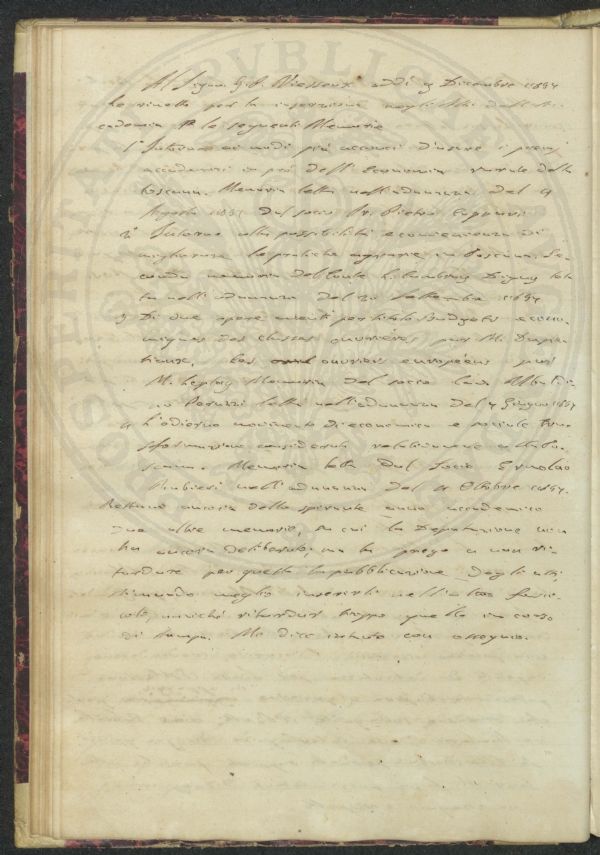 Al Sigr. G. P. Vieusseux addì 9 Dicembre 1857
Le rimetto per la inserzione negli Atti dell'Ac-
cademia le seguenti Memorie
1° Intorno ai modi più acconci d'usare i premj
accademici in prò dell'economia rurale della
Toscana. Memoria letta nell'adunanza del 9
Agosto 1857 dal socio Dr. Pietro
2° Intorno alla possibilità e convenienza di
migliorare le pratiche agrarie in Toscana. Se-
conda memoria del Conte L. Cambray Digny let-
ta nell'adunanza del 20 Settembre 1857
3 Di due opere aventi per titolo Budgets econo-
miques des classes ouvrières par M. Ducpe-
tiaux. Les ouvriers européens par
M. Leplay Memoria del socio Cav. Ubaldi-
no Peruzzi letta nell'adunanza del 7 Giugno 1857
4 L'odierno movimento di economica e sociale tras-
sformazione considerato relativamente alla To-
scana. Memoria letta dal Socio Ermolao
Rubieri nell'adunanza del 4 Ottobre 1857.
Restano ancora dello spirante anno accademico
due altre memorie, su cui la Deputazione non
ha ancora deliberato; ma la prego a non ri-
tardare per quelle la pubblicazione degli atti
stimando meglio inserirle nell'altro fasci-
colo, anziché ritardar troppo quello in corso
di stampa. Mi dico intanto con ossequio.